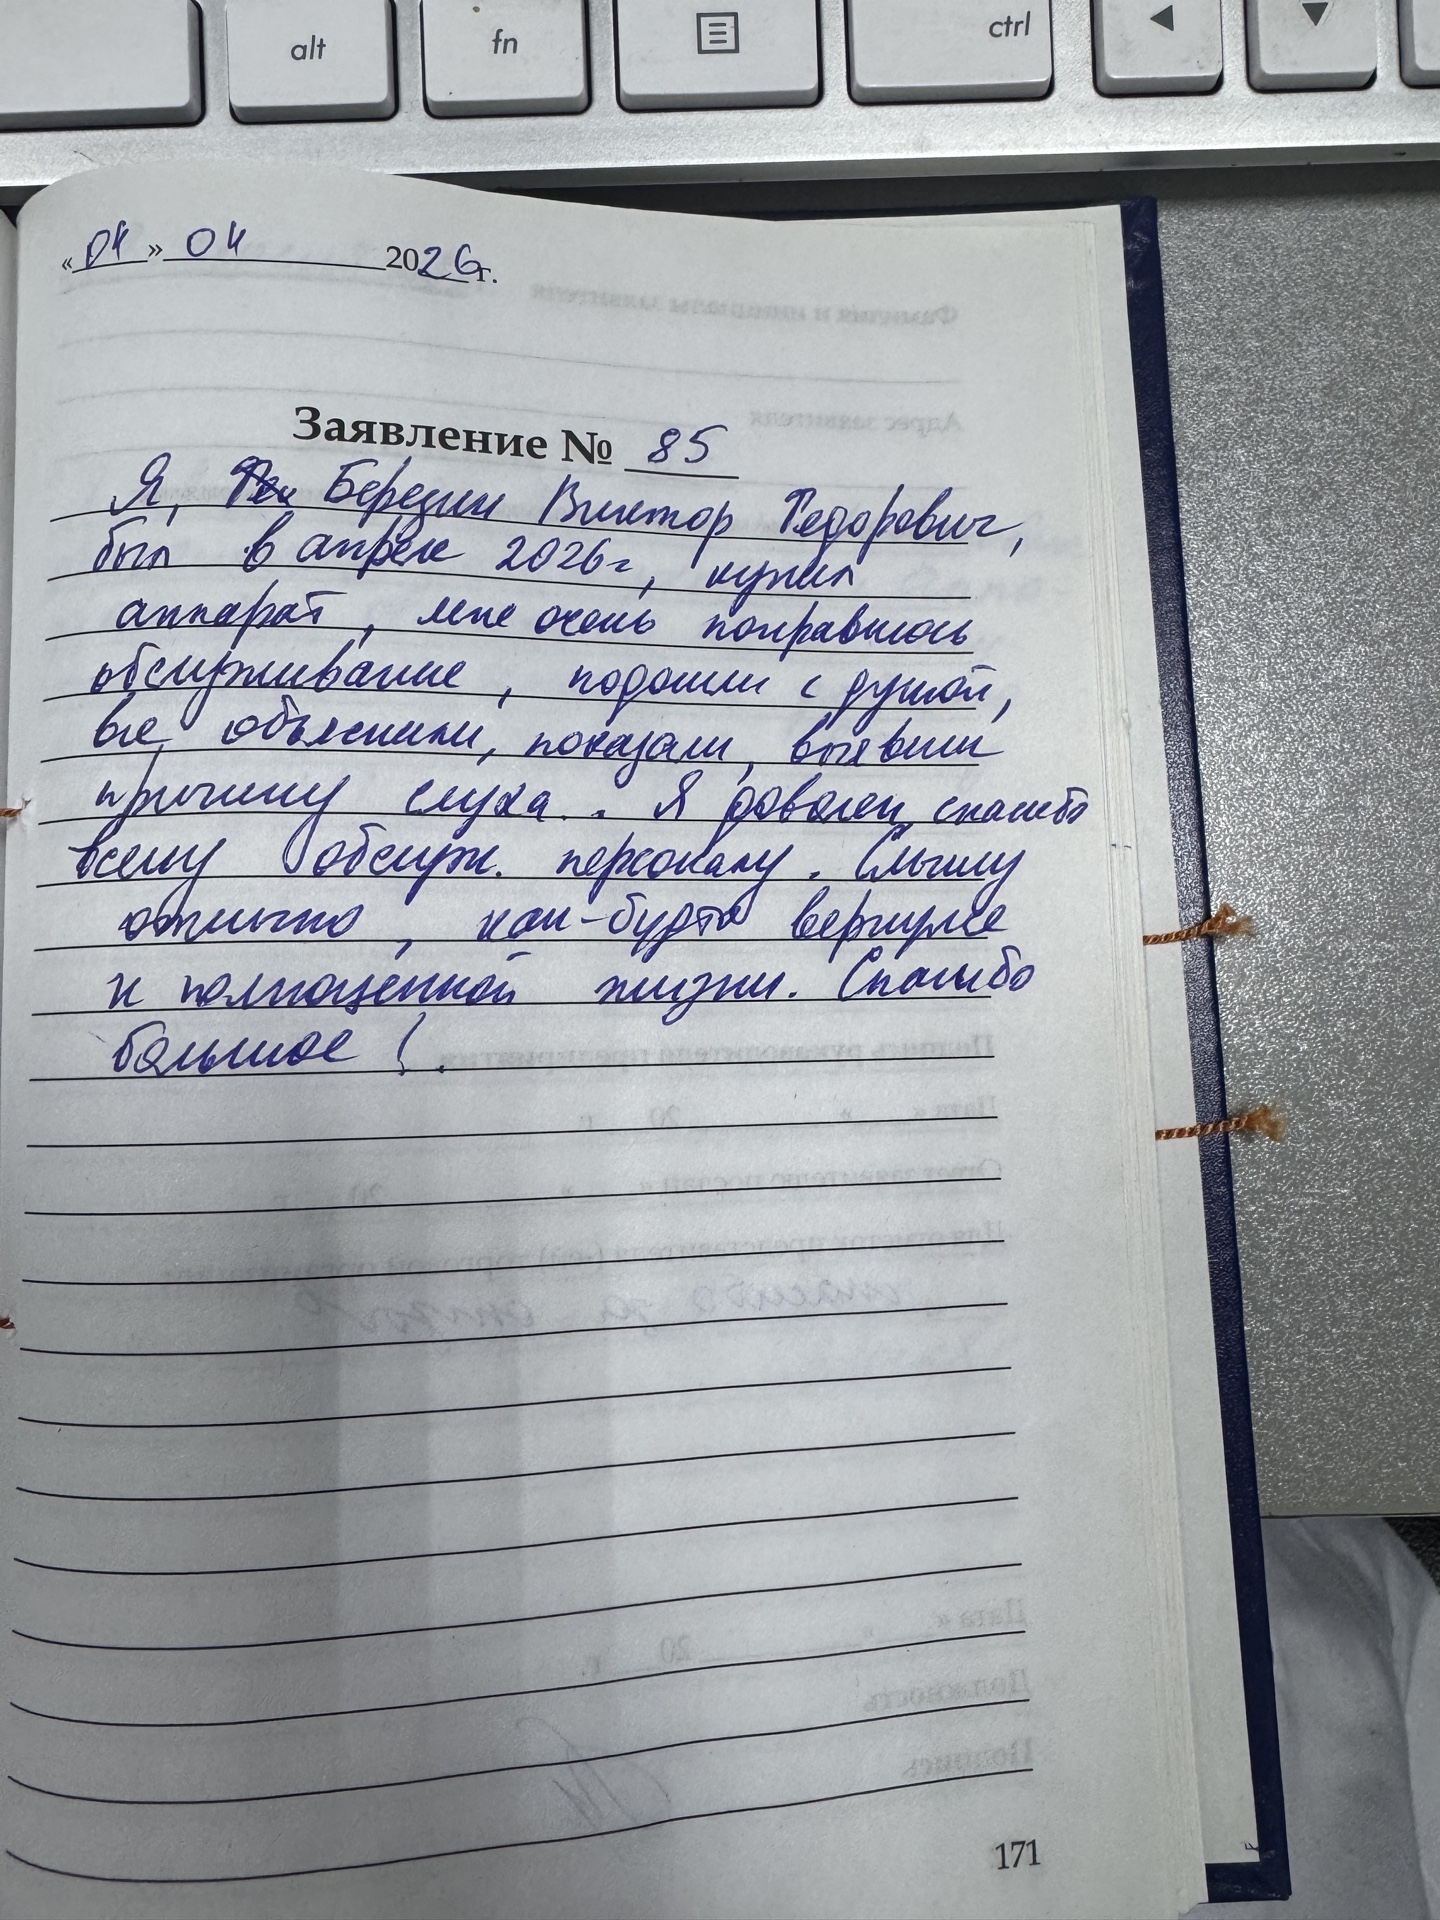 alt
fn
ctrl
«04» 04 2026г.
Заявление № 85
Я, Березин Виктор Федорович,
был в апреле 2026г, купил
аппарат, мне очень понравилось
обслуживание, подошли с душой,
все объяснили, показали, выявили
причину слуха. Я доволен, спасибо
всему обслуж. персоналу. Слышу
отлично, как-будто вернулся
к полноценной жизни. Спасибо
большое!
171